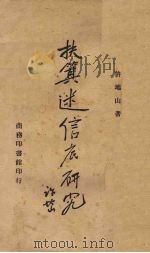 許地山著
扶箕迷信底研究
商務印書館印行